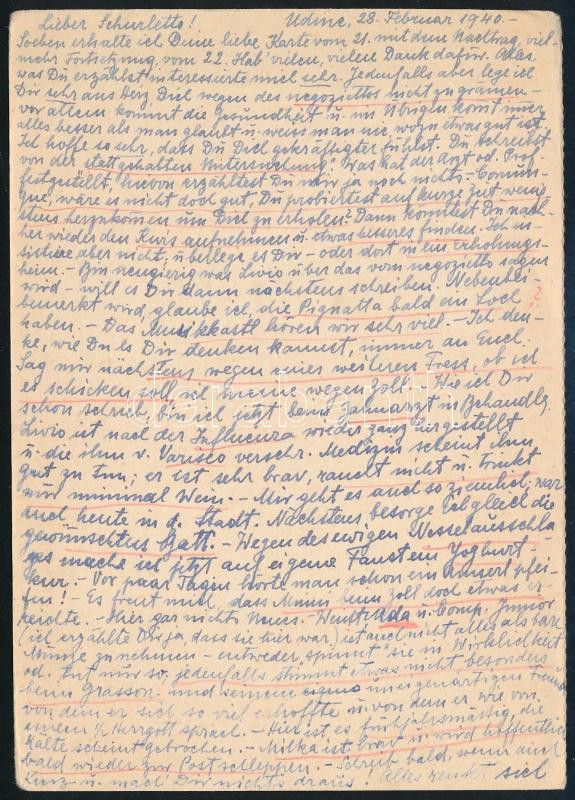 Lieber Schurletto! Udine, 28. Februar 1940.-
Soeben erhalte ich Deine liebe Karte vom 21. mit dem Nachtrag, viel-
mehr Fortsetzung, vom 22. Hab' vielen, vielen Dank dafür. Alles,
was Du erzählst interessierte mich sehr. Jedenfalls aber lege ich
Dir sehr ans Herz, Dich wegen des negoziettos nicht zu grämen-
vor allem kommt die Gesundheit u. im Übrigen komt imer
alles besser als man glaubt u. weiss man nie, wozu etwas gut ist.
Ich hoffe so sehr, dass Du Dich gekräftigter fühlst. Du schreibst
von der "stattgehabten Untersuchung". Was hat der Arzt od. Prof.
festgestellt, hievon erzähltest Du mir ja noch nichts.- Comun-
que, wäre es nicht doch gut, Du probiertest auf kurze Zeit wenig-
stens herzukommen um Dich zu erholen? Dann könntest Du nach-
her wieder den Kurs aufnehmen u. etwas besseres finden. Ich in-
sistiere aber nicht, überlege es Dir - oder dort in ein Erholungs-
heim.- Bin neugierig was Livio über das vom negozietto sagen
wird - will es Dir dann nächstens schreiben. Nebenbei
bemerkt wird, glaube ich, die Pignatta bald ein Loch ?
haben.- Das Musikkastl hören wir sehr viel.- Ich den-
ke, wie Du es Dir denken kannst, immer an Euch.
Sag mir nächstens wegen eines weiteren Fress, ob ich
es schicken soll, ich meine wegen Zoll.- Wie ich Dir
schon schrieb, bin ich jetzt beim Zahnarzt in Behandlg.
Livio ist nach der Influenza wieder ganz hergestellt
u. die ihm v. Varisco verschr. Medizin scheint ihm
gut zu tun; er ist sehr brav, raucht nicht u. trinkt
nur minimal Wein.- Mir geht es auch so ziemlich, war
auch heute in d. Stadt. Nächstens besorge ich gleich die
gewünschten Batt.- Wegen des ewigen Nesselausschla-
ges mache ich jetzt auf eigene Faust ein Yoghurt-
kur.- Vor paar Tagen hörte man schon ein Amserl pfei-
fen!- Es freut mich, dass Mimi beim Zoll doch etwas er-
reichte.- Hier gar nichts Neues.- Von Ada u. Comp. Junior
(ich erzählte Dir ja, dass sie hier war) ist auch nicht alles als bare
Münze zu nehmen - entweder "spinnt" sie in Wirklichkeit
od. tut nur so, jedenfalls stimmt etwas nicht besonders
beim Grasson und seinem eigenartigen Freund
von dem er sich so viel erhoffte u. von dem er wie von
einem Herrgott sprach.- Hier ist es frühjahrsmässig, die
Kälte scheint gebrochen.- Milka ist brav u. wird hoffentlich
bald wieder zur Post schleppen.- Schreib bald, wenn auch
kurz u. mach Dir nichts draus! Alles renkt sich
darabanth